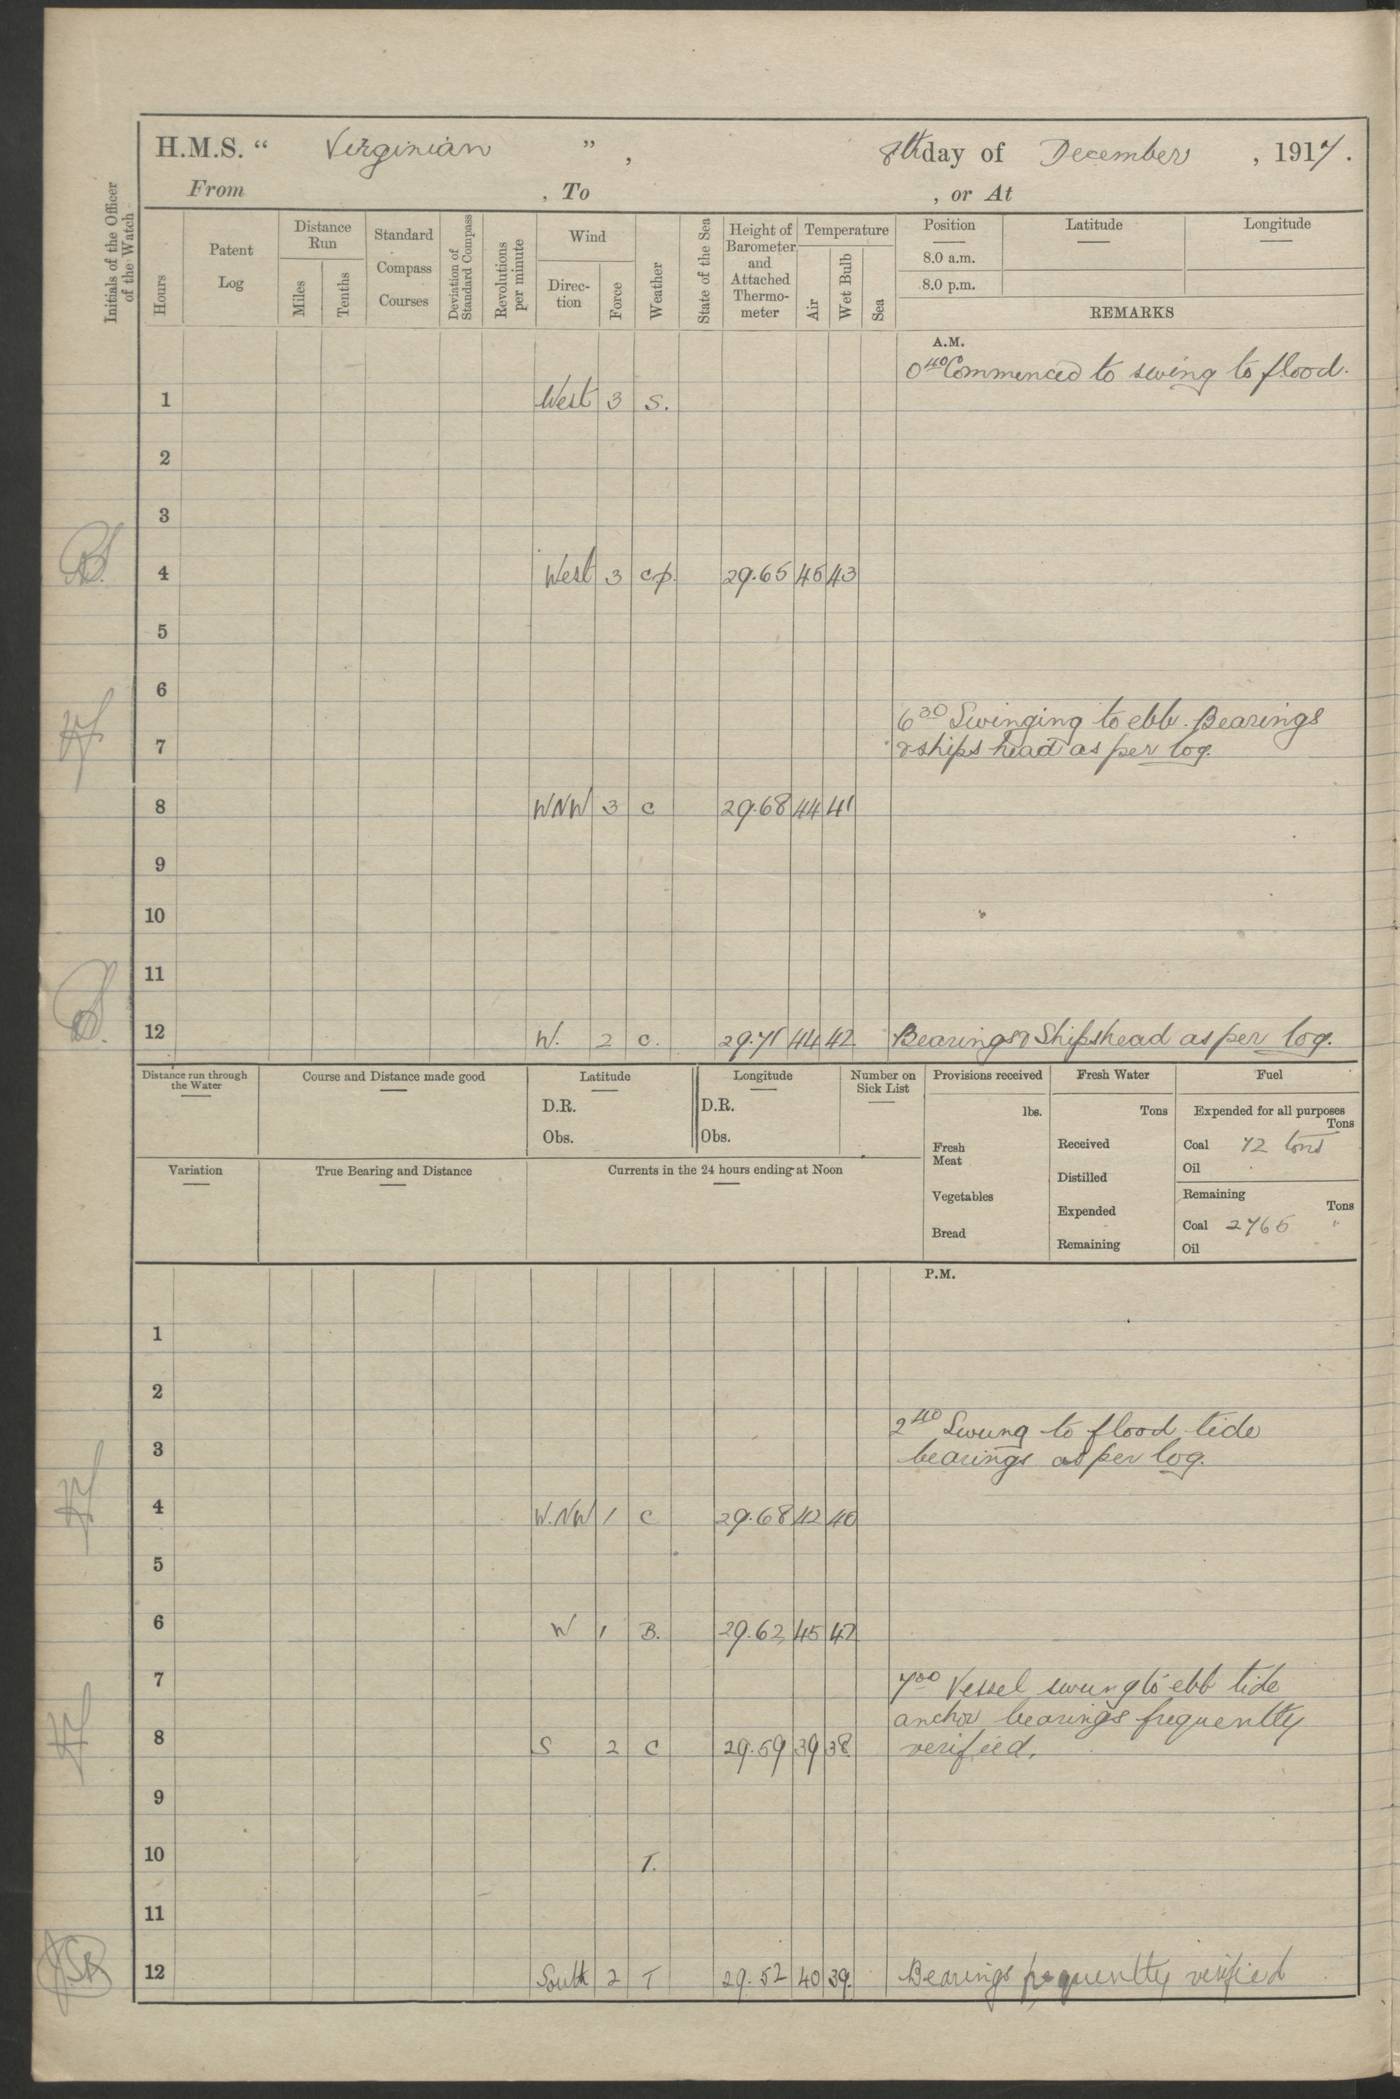 H.M.S. “ Virginian ” , 8th day of December , 1917.
From , To , or At
Initials of the Officer of the Watch
Hours
Patent Log
Distance Run
Miles
Tenths
Standard Compass Courses
Deviation of Standard Compass
Revolutions per minute
Wind
Direc-tion
Force
Weather
State of the Sea
Height of Barometer and Attached Thermo-meter
Temperature
Air
Wet Bulb
Sea
Position Latitude Longitude
8.0 a.m.
8.0 p.m.
REMARKS
A.M.
0 40 Commenced to swing to flood.
1 West 3 S.
2
3
4 West 3 cp. 29.65 45 43
5
6
6 30 Swinging to ebb. Bearings
7 & ships head as per log.
8 WNW 3 c 29.68 44 41
9
10
11
12 W. 2 c. 29.71 44 42 Bearings & Shipshead as per log.
Distance run through the Water
Course and Distance made good
Latitude
D.R.
Obs.
Longitude
D.R.
Obs.
Number on Sick List
Provisions received
lbs.
Fresh Meat
Vegetables
Bread
Fresh Water
Tons
Received
Distilled
Expended
Remaining
Fuel
Expended for all purposes
Tons
Coal 72 tons
Oil
Remaining
Tons
Coal 2765 "
Oil
Variation
True Bearing and Distance
Currents in the 24 hours ending at Noon
P.M.
1
2
2 40 Swung to flood tide
3 bearings as per log.
4 W.NW 1 c 29.68 42 40
5
6 W 1 B. 29.62 45 42
7 7 00 Vessel swung to ebb tide
anchor bearings frequently
8 S 2 c 29.59 39 38 verified.
9
10 T.
11
12 South 2 T 29.52 40 39. Bearings frequently verified